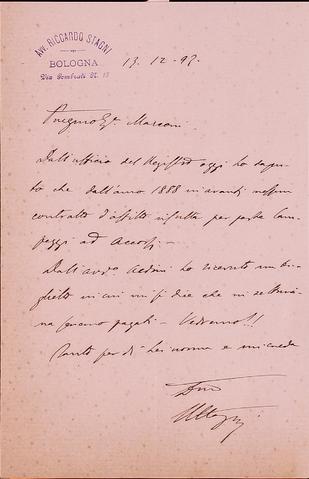 AVV. RICCARDO STAGNI
BOLOGNA
Via Gombruti N. 13
13. 12 - 97.
Pregmo Sigr. Marconi
Dall'ufficio del Registro oggi ho sapu-
to che dall'anno 1888 in avanti nessun
contratto d'affitto risulta per parte Cam-
peggi ad Accorsi -
Dall'avv. ho ricevuto un bi-
glietto in cui mi si dice che in settima-
na saranno pagati - Vedremo!!
Tanto per di Lei norma e mi creda